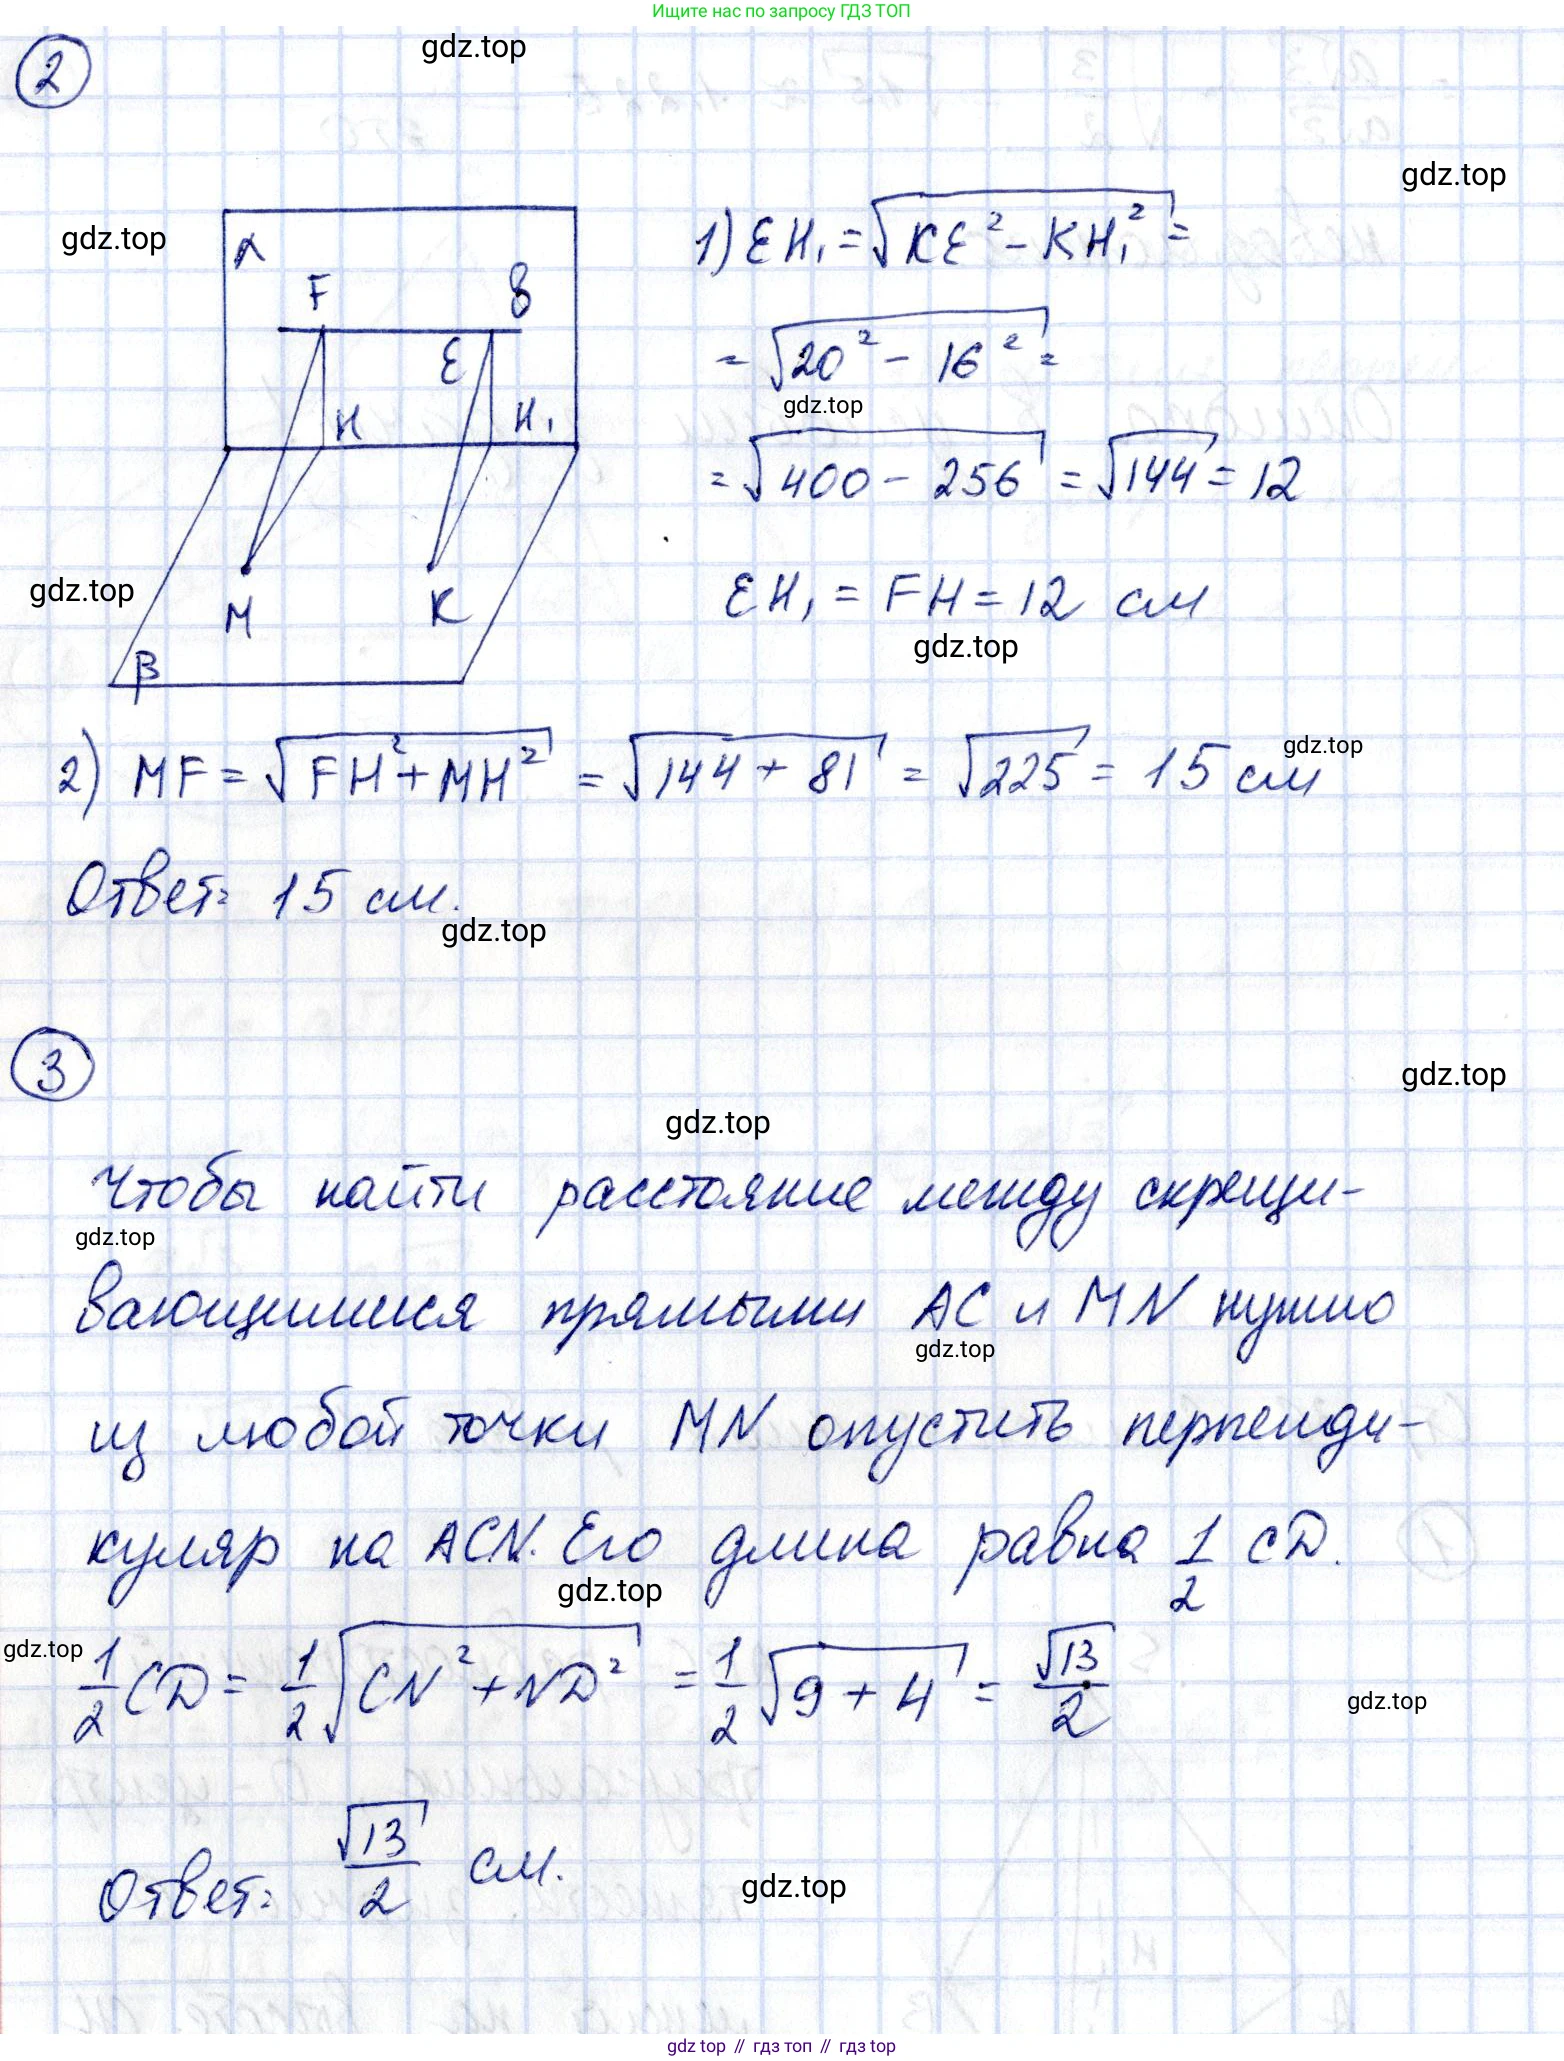 Ищите нас по запросу ГДЗ ТОП
gdz.top
2
gdz.top
gdz.top
α
F
в
E
H
H₁
M
K
β
1) EH₁ = √(KE² - KH₁²) =
= √(20² - 16²) =
gdz.top
= √(400 - 256) = √144 = 12
gdz.top
EH₁ = FH = 12 см
gdz.top
2) MF = √(FH² + MH²) = √(144 + 81) = √225 = 15 см
gdz.top
Ответ: 15 см.
gdz.top
3
gdz.top
gdz.top
Чтобы найти расстояние между скрещи-
gdz.top
вающимися прямыми AC и MN нужно
gdz.top
из любой точки MN опустить перпенди-
куляр на ACN. Его длина равна 1/2 CD.
gdz.top
gdz.top
1/2 CD = 1/2 √(CN² + ND²) = 1/2 √(9 + 4) = √13/2
gdz.top
Ответ: √13/2 см.
gdz.top
gdz.top // гдз топ // гдз.top